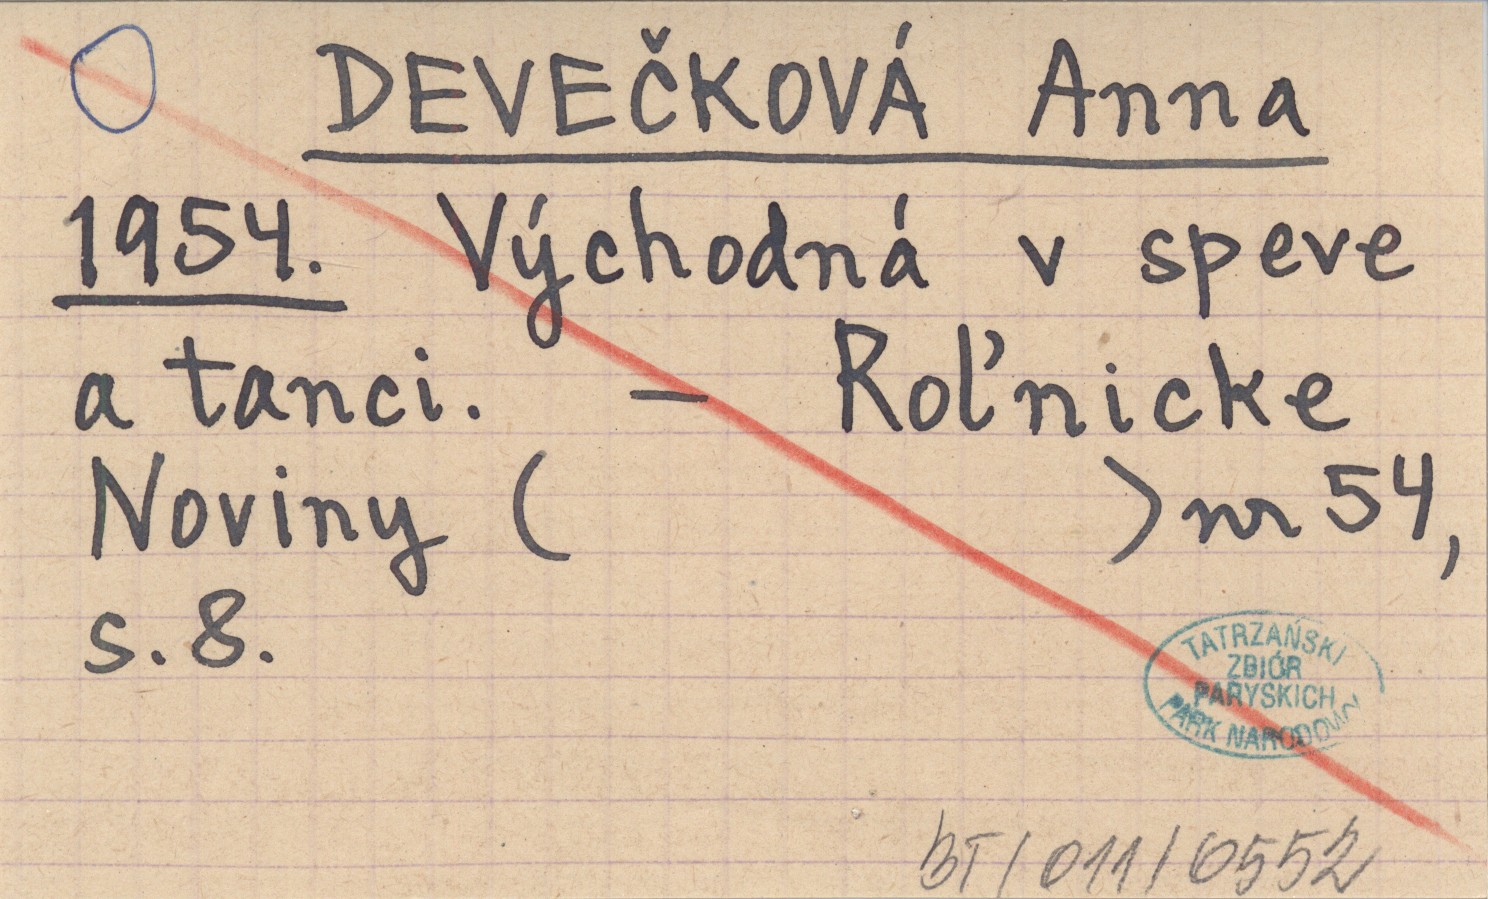 DEVEČKOVÁ Anna
1954. Východná v speve
a tanci. — Roľnicke
Noviny ( ) nr 54,
s. 8.
TATRZAŃSKI
ZBIÓR
PARYSKICH
PARK NARODOWY
BT/011/0552